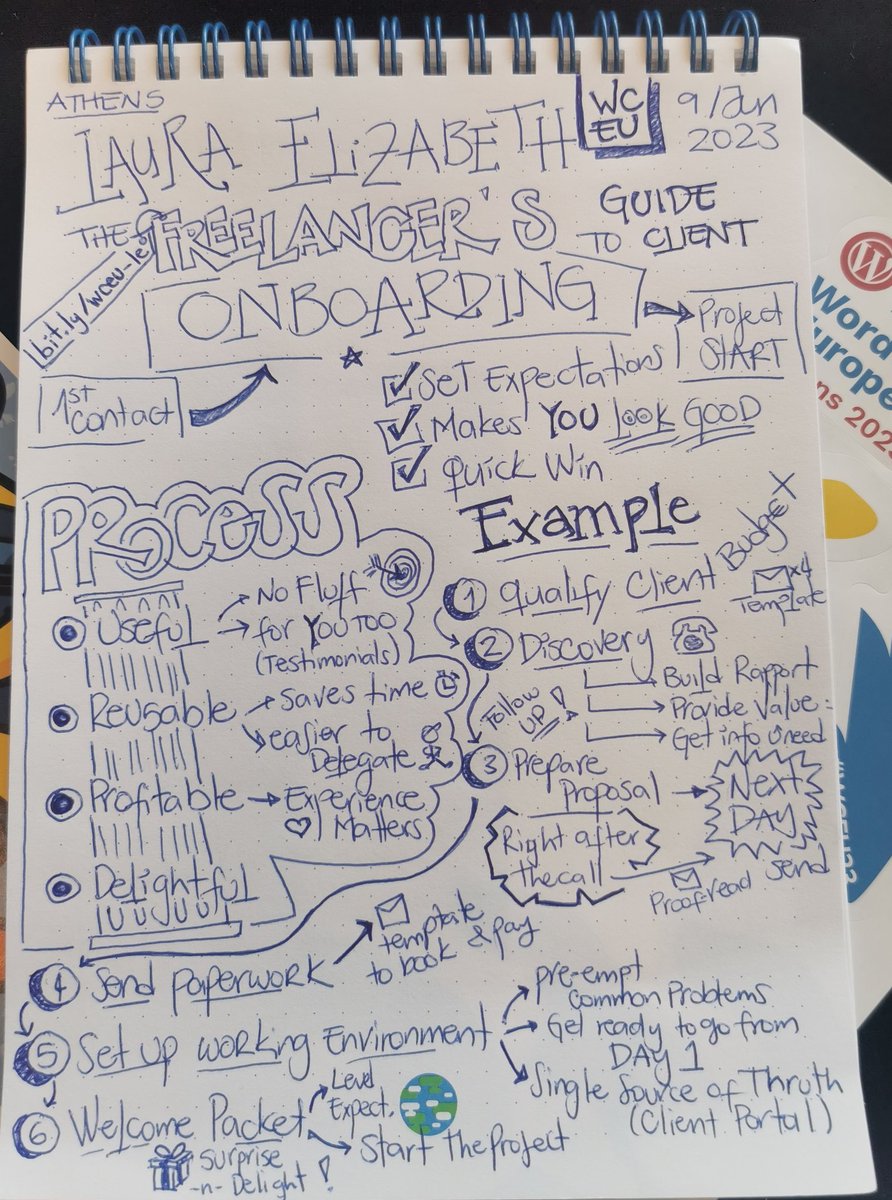 ATHENS
LAURA ELIZABETH
WC
EU
9/Jun
2023
THE FREELANCER'S GUIDE
TO CLIENT
ONBOARDING
bit.ly/wceu-le
1st
Contact
Project
START
Set Expectations
Makes YOU Look GOOD
Quick Win
PROCESS
Useful
No Fluff
for YOU TOO
(Testimonials)
Reusable
Saves time
easier to
Delegate
Profitable
Experience
Matters
Delightful
Example
1 Qualify Client
Budget X
x4
Template
2 Discovery
Build Rapport
Provide Value
Get info u need
Follow
UP!
3 Prepare
Proposal
Next
DAY
Right after
the call
Proof-read
send
4 Send paperwork
template
to book & pay
5 Set up working Environment
pre-empt
Common Problems
Get ready to go from
DAY 1
Single Source of Thruth
(Client Portal)
6 Welcome Packet
Level
Expect.
Start The Project
Surprise
-n- Delight!
Word
Europe
ns 2023